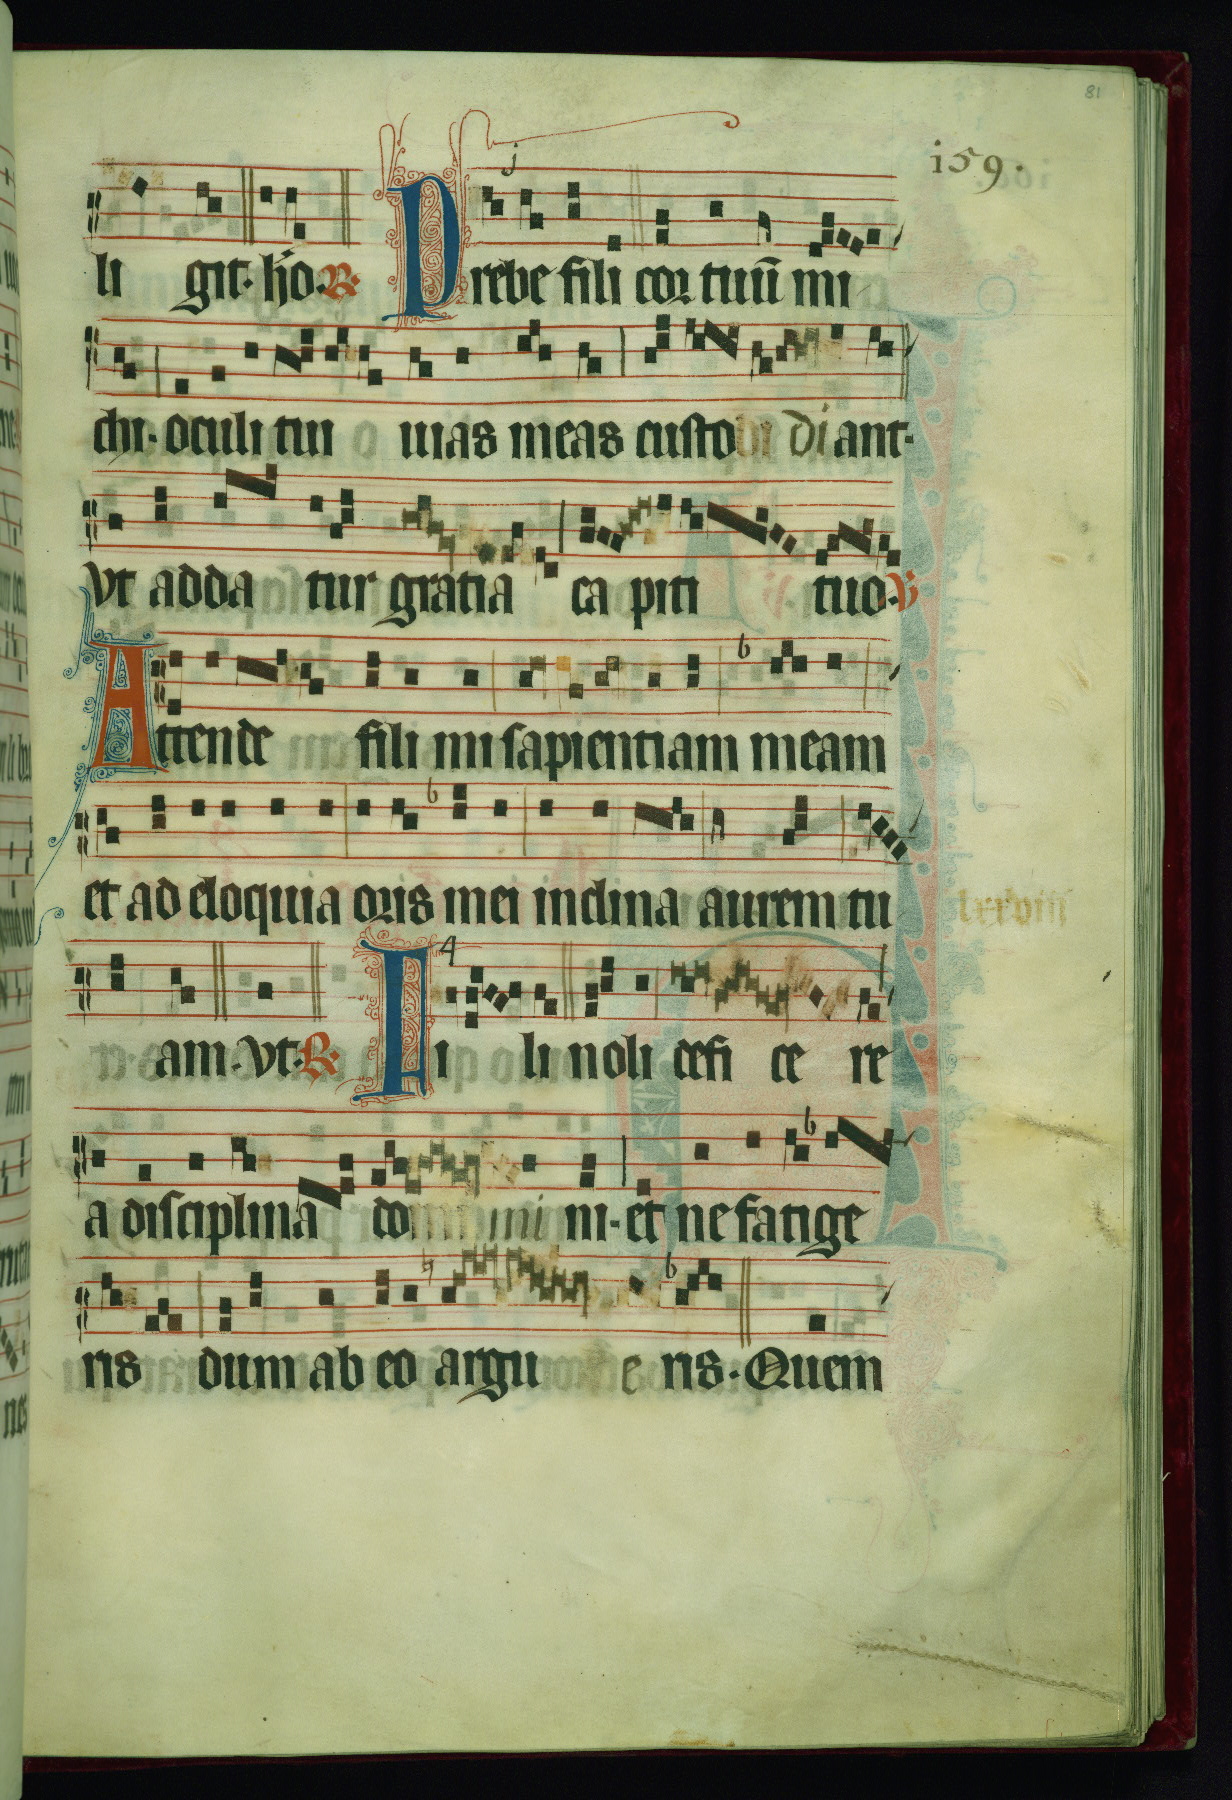 81
i59.
li git. ho. R. j Prebe fili cor tuū mi
chi. oculi tui uias meas custodiant.
Vt adda tur gratia ca piti tuo. V
Attende fili mi sapientiam meam
et ad eloquia oris mei inclina aurem tu
am. Vt. R. 4 Fi li noli defi ce re
a disciplina do mini. et ne fatige
ris dum ab eo argu e ris. Quem